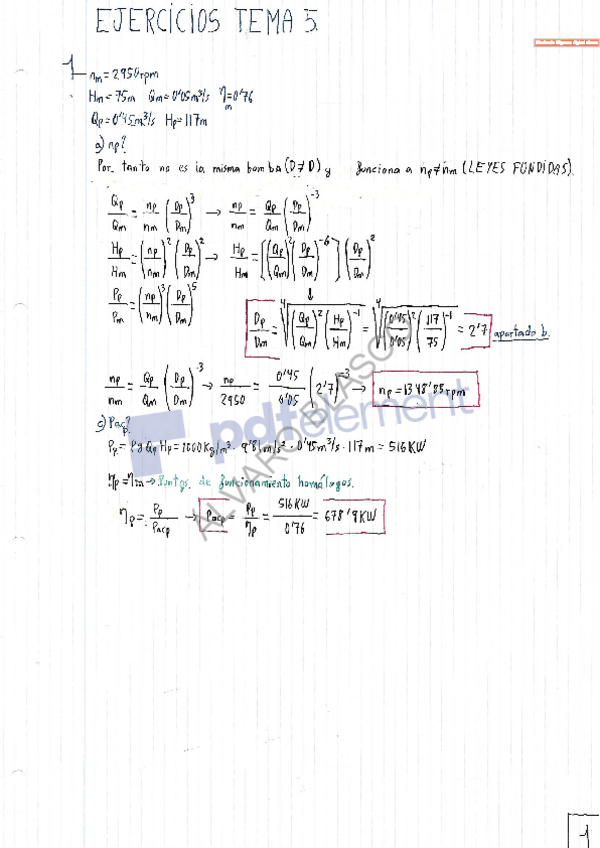 EJERCICIOS TEMA 5.
1
nm = 2950rpm
Hm = 75m Qm = 0'05m³/s ηm = 0'76
Qp = 0'45m³/s Hp = 117m
a) np?
Por tanto no es la misma bomba (D≠D) y funciona a np≠nm (LEYES FUNDIDAS).
Qp/Qm = np/nm (Dp/Dm)³ → np/nm = Qp/Qm (Dp/Dm)⁻³
Hp/Hm = (np/nm)² (Dp/Dm)² → Hp/Hm = [(Qp/Qm)² (Dp/Dm)⁻⁶] (Dp/Dm)²
Pp/Pm = (np/nm)³ (Dp/Dm)⁵
↓
Dp/Dm = ⁴√((Qp/Qm)² (Hp/Hm)⁻¹) = ⁴√((0'45/0'05)² (117/75)⁻¹) = 2'7 apartado b.
np/nm = Qp/Qm (Dp/Dm)⁻³ → np/2950 = 0'45/0'05 (2'7)⁻³ → np = 1348'85rpm
c) Pacp?
Pp = ρ g Qp Hp = 1000Kg/m³ · 9'81m/s² · 0'45m³/s · 117m = 516KW
ηp = ηm → Puntos de funcionamiento homólogos.
ηp = Pp/Pacp → Pacp = Pp/ηp = 516KW/0'76 = 678'9KW
pdfelement
ALVARO BLASCO
1